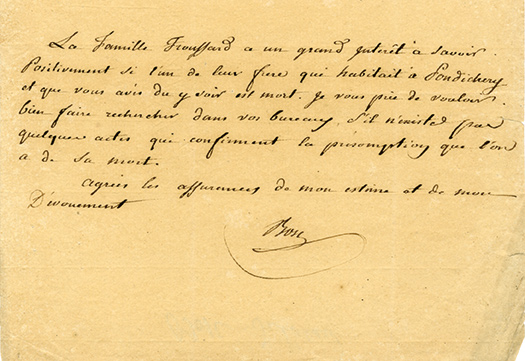 La famille Froussard a un grand Interêt a savoir
Positivement si l'un de leur frere qui habitait à Pondichery
et que vous avés du y voir est mort. Je vous prie de vouloir
bien faire rechercher dans vos bureaux, s'il n'existe pas
quelques actes qui confirment la présomption que l'on
a de sa mort.
agrées les assurances de mon estime et de mon
Dévouement
Bosc